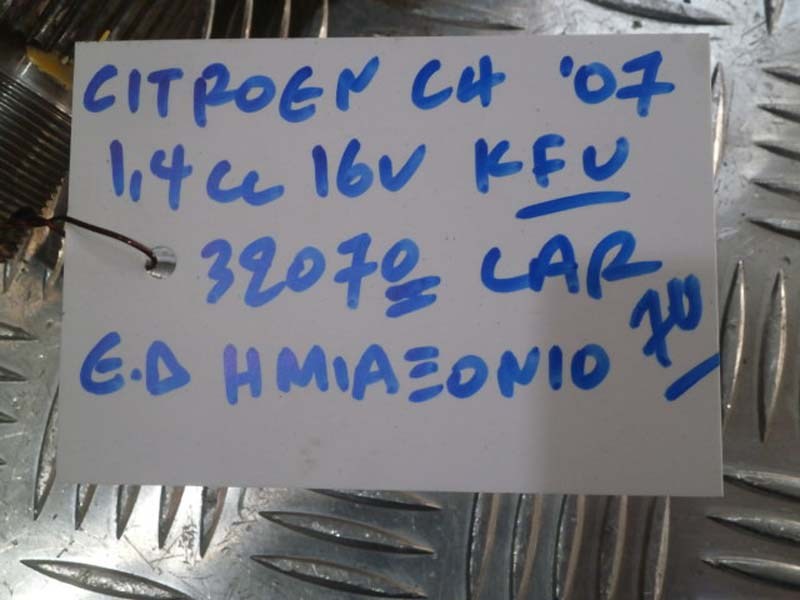 CITROEN C4 '07
1,4cc 16V KFU
32070 CAR
70
Ε.Δ ΗΜΙΑΞΟΝΙΟ